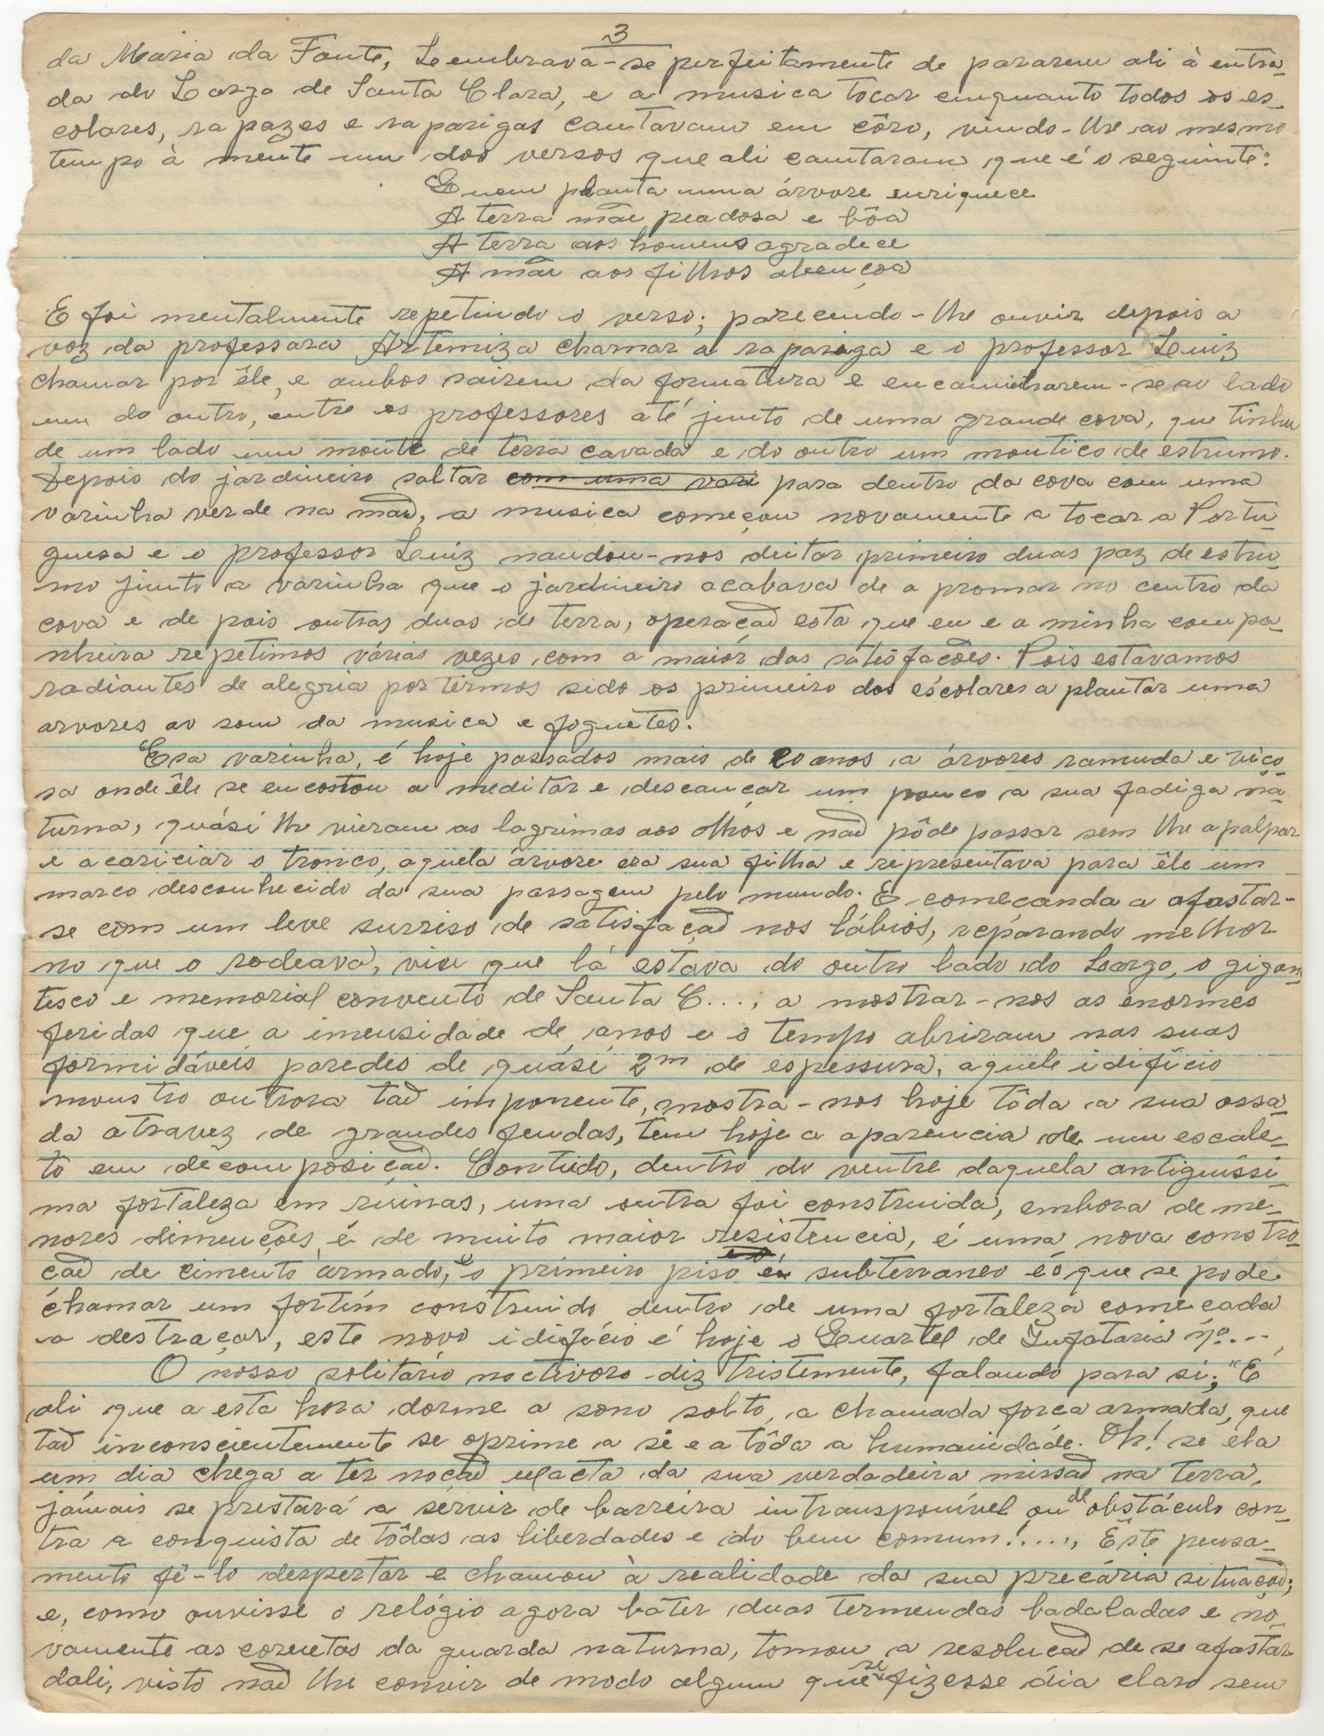 3
da Maria da Fonte, Lembrava-se perfeitamente de pararem ali à entra-
da do Largo de Santa Clara, e a musica tocar emquanto todos os es-
colares, rapazes e raparigas cantavam em côro, vindo-lhe ao mesmo
tempo à mente um dos versos que ali cantaram que é o seguinte:
Quem planta uma árvore enriquece
A terra mãe piadosa e bôa
A terra aos homens agradece
A mãe aos filhos abençoa
E foi mentalmente repetindo o verso; parecendo-lhe ouvir depois a
voz da professara Artemiza chamar a rapariga e o professor Luiz
chamar por êle, e ambos sairem da formatura e encaminharem-se ao lado
um do outro, entre os professores até junto de uma grande cova, que tinha
de um lado um monte de terra cavada e do outro um montico de estrumo.
Depois do jardineiro saltar com uma vari para dentro da cova com uma
varinha verde na maõ, a musica começou novamente a tocar a Portu-
guesa e o professor Luiz mandou-nos deitar primeiro duas paz de estru-
mo junto a varinha que o jardineiro acabava de a promar no centro da
cova e de pois outras duas de terra, operaçaõ esta que eu e a minha compa-
nheira repetimos várias vezes com a maiór das satisfacões. Pois estavamos
radiantes de alegria por termos sido os primeiro dos escolares a plantar uma
arvores ao som da musica e foguetes.
Esa varinha, é hoje passados mais de 20 anos a árvores ramuda e viço-
sa onde êle se encostou a meditar e descançar um pouco a sua fadiga na-
turna, quási lhe vieram as lagrimas aos olhos e naõ pôde passar sem lhe apalpar
e acariciar o tronco, aquela árvore era sua filha e representava para êle um
marco desconhecido da sua passagem pelo mundo. E começanda a afastar-
se com um leve surriso de satisfaçaõ nos lábios, reparando melhor
no que o rodeava, viu que lá estava do outro lado do Largo, o gigan-
tesco e memorial convento de Santa C...., a mostrar-nos as enormes
feridas que a imensidade de anos e o tempo abriram nas suas
formidáveis paredes de quási 2m de espessura, aquele idifício
monstro outrora taõ imponente, mostra-nos hoje tôda a sua ossa-
da atravez de grandes fendas, tem hoje a aparencia de um escale-
to em decomposiçaõ. Contudo, dentro do ventre daquela antiquíssi-
ma fortaleza em ruinas, uma outra foi construida, embora de me-
nores dimenções é de muito maior resistencia, é uma nova constro-
caõ de cimento armado, e o primeiro piso é subterraneo é o que se pode
chamar um fortím construido dentro de uma fortaleza começada
a destraçar, este novo idifício é hoje o Quartel de Infataria nº....
O nosso solitário noctivoro diz tristemente, falando para si; "E
ali que a esta hora dorme a sono solto, a chamada forca armada, que
taõ inconscientemente se oprime a si e a tôda a humanidade. Oh! se ela
um dia chega a ter nocaõ exacta da sua verdadeira missaõ na terra,
jámais se prestará a servir de barreira intransponível ou de obstáculo con-
tra a conquista de tôdas as liberdades e do bem comum!...., Êste pensa-
mento fê-lo despertar e chamou à realidade da sua precária situaçaõ;
e, como ouvisse o relógio agora bater duas termendas badaladas e no-
vamente as cornetas da guarda naturna, tomou a resolucaõ de se afastar
dali, visto naõ lhe convir de modo algum que se fizesse dia claro sem